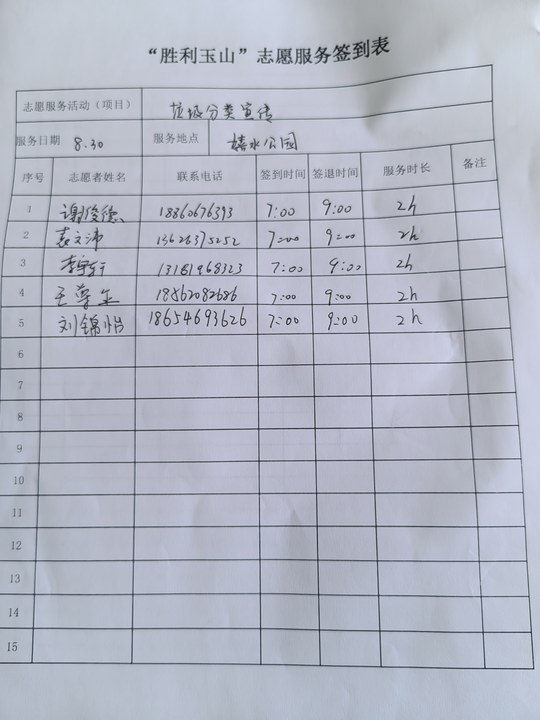 “胜利玉山”志愿服务签到表
志愿服务活动（项目） 垃圾分类宣传
服务日期 8.30 服务地点 嬉水公园
序号 志愿者姓名 联系电话 签到时间 签退时间 服务时长 备注
1 谢俊德 18860676393 7:00 9:00 2h
2 袁文沛 7:00 9:00 2h
3 7:00 9:00 2h
4 王尊 18562082686 7:00 9:00 2h
5 刘锦怡 18654693626 7:00 9:00 2h
6
7
8
9
10
11
12
13
14
15